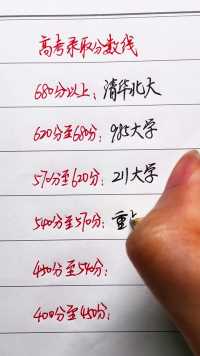 高考录取分数线
680分以上：清华北大
620分至680分：985大学
570分至620分：211大学
540分至570分：重
450分至540分：
400分至450分：